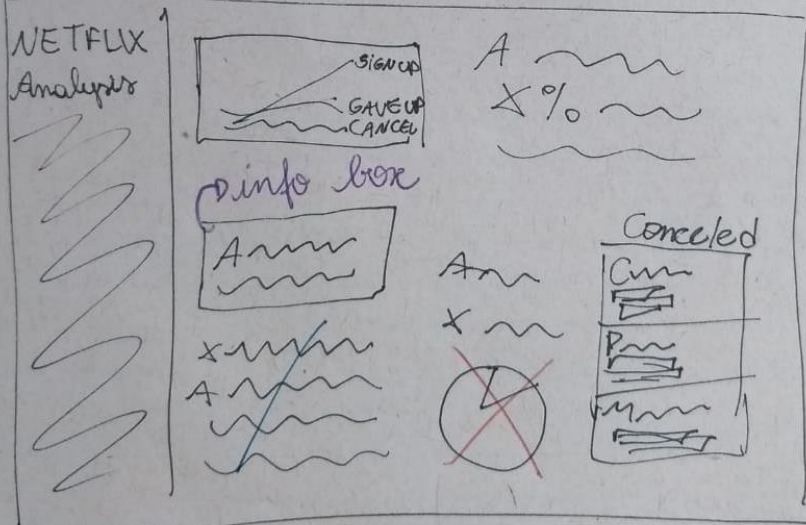 NETFLIX
Analysis
SIGNUP
GAVE UP
CANCEL
A
X%
info box
A
Conceled
A
X
X
A